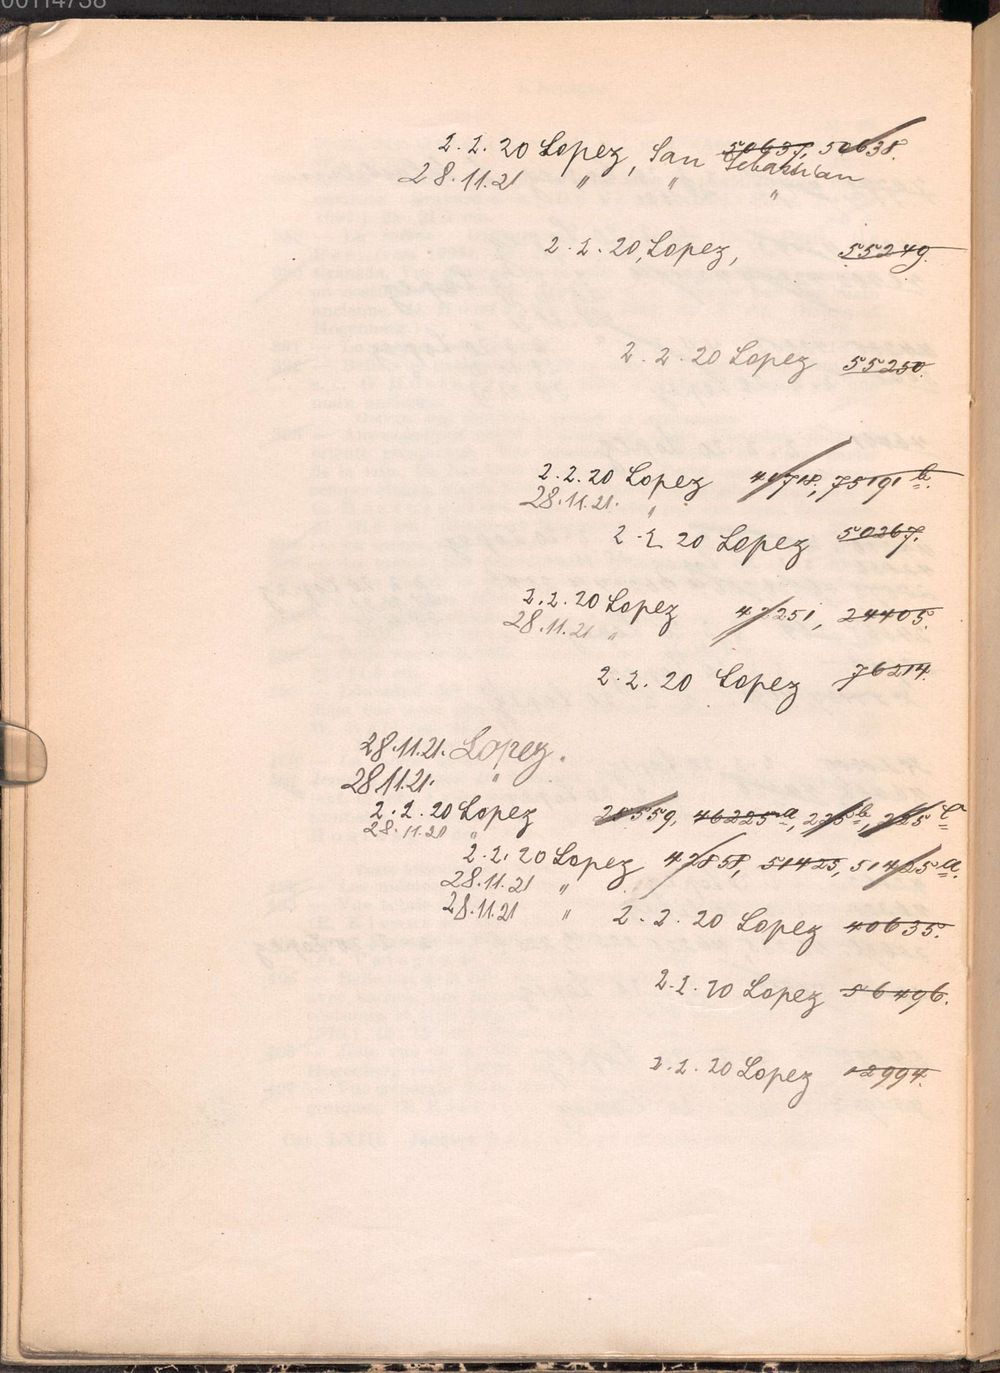 00114738
2.2.20 Lopez, San Sebastian 50637, 50638.
28.11.21 " " "
2.2.20, Lopez, 55249.
2.2.20 Lopez 55250.
2.2.20 Lopez 41718, 75191 b.
28.11.21. "
2.2.20 Lopez 50267.
2.2.20 Lopez 47251, 24405.
28.11.21 "
2.2.20 Lopez 76214.
28.11.21. Lopez.
28.11.21. "
2.2.20 Lopez 28559, 46225 a, 225 b, 225 c
28.11.21 "
2.2.20 Lopez 47858, 51425, 51425 a.
28.11.21 "
28.11.21 " 2.2.20 Lopez 40635.
2.2.20 Lopez 56496.
2.2.20 Lopez 12994.